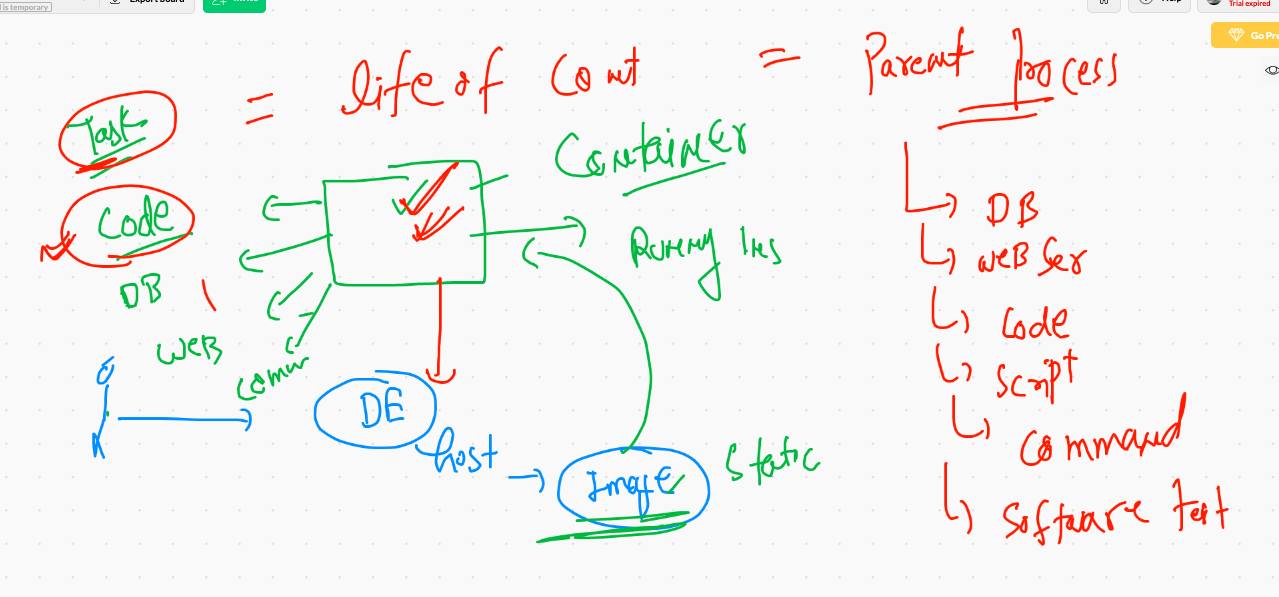 is temporary
Export board
Help
Trial expired
Go Pre
Task = life of Cont = Parent Process
Container
Code
Running Ins
DB
WEB
Comm
DE
host
Image
Static
DB
WEB Ser
Code
Script
Command
Software Test